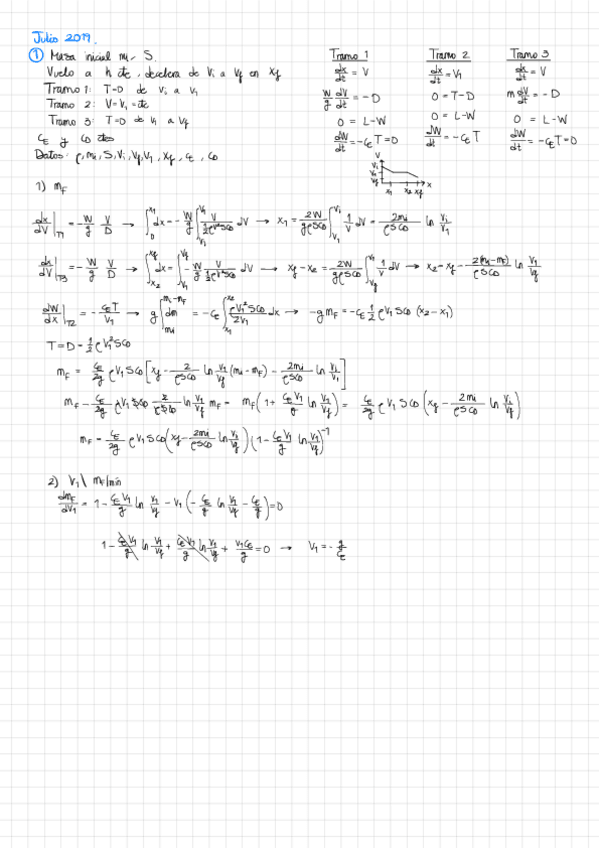 Julio 2019.
① Masa inicial mi, S.
Vuelo a h cte, decelera de Vi a Vf en xf
Tramo 1: T=0 de Vi a V1
Tramo 2: V=V1=cte
Tramo 3: T=0 de V1 a Vf
CE y CD ctes
Datos: ρ, mi, S, Vi, Vf, V1, xf, CE, CD
Tramo 1
dx/dt = V
W/g dV/dt = -D
0 = L-W
dW/dt = -CE T = 0
Tramo 2
dx/dt = V1
0 = T-D
0 = L-W
dW/dt = -CE T
Tramo 3
dx/dt = V
m dV/dt = -D
0 = L-W
dW/dt = -CE T = 0
V
Vi
V1
Vf
x1 x2 xf x
1) mF
dx/dV |T1 = -W/g V/D → ∫_0^x1 dx = -W/g ∫_Vi^V1 V/(½ρV²SCD) dV → x1 = 2W/(gρSCD) ∫_V1^Vi 1/V dV = 2mi/(ρSCD) ln Vi/V1
dx/dV |T3 = -W/g V/D → ∫_x2^xf dx = ∫_V1^Vf -W/g V/(½ρV²SCD) dV → xf - x2 = 2W/(gρSCD) ∫_Vf^V1 1/V dV → x2 = xf - 2(mi-mF)/(ρSCD) ln V1/Vf
dW/dx |T2 = -CE T/V1 → g ∫_mi^mi-mF dm = -CE ∫_x1^x2 ρV1²SCD/2V1 dx → -g mF = -CE ½ ρV1 SCD (x2-x1)
T = D = ½ρV1²SCD
mF = CE/2g ρV1 SCD [xf - 2/(ρSCD) ln V1/Vf (mi-mF) - 2mi/(ρSCD) ln Vi/V1]
mF - CE/2g ρV1 SCD 2/(ρSCD) ln V1/Vf mF = mF (1 + CE V1/g ln V1/Vf) = CE/2g ρ V1 SCD (xf - 2mi/(ρSCD) ln Vi/Vf)
mF = CE/2g ρV1 SCD (xf - 2mi/(ρSCD) ln Vi/Vf) (1 - CE V1/g ln V1/Vf)^-1
2) V1 \ mF mín
dmF/dV1 = 1 - CE V1/g ln V1/Vf - V1 (-CE/g ln V1/Vf - CE/g) = 0
1 - CE V1/g ln V1/Vf + CE V1/g ln V1/Vf + V1 CE/g = 0 → V1 = -g/CE